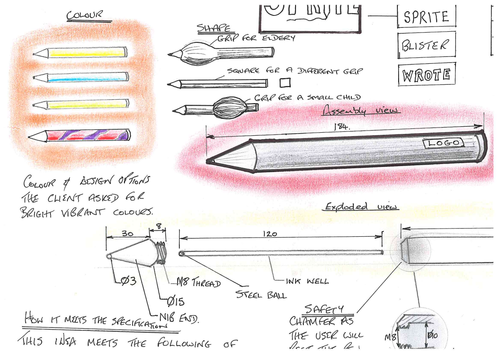 COLOUR
SHAPE
SPRITE
GRIP FOR ELDERY
SPRITE
SQUARE FOR A DIFFERENT GRIP
BLISTER
GRIP FOR A SMALL CHILD
WROTE
Assembly view
184.
LOGO
COLOUR & DESIGN OPTIONS
THE CLIENT ASKED FOR
BRIGHT VIBRANT COLOURS.
Exploded view
30
8
120
Ø3
M8 THREAD
INK WELL
STEEL BALL
Ø15
NIB END.
SAFETY
CHAMFER AS
THE USER WILL
M8
Ø10
HOW IT MEETS THE SPECIFICATION
THIS IDEA MEETS THE FOLLOWING OF